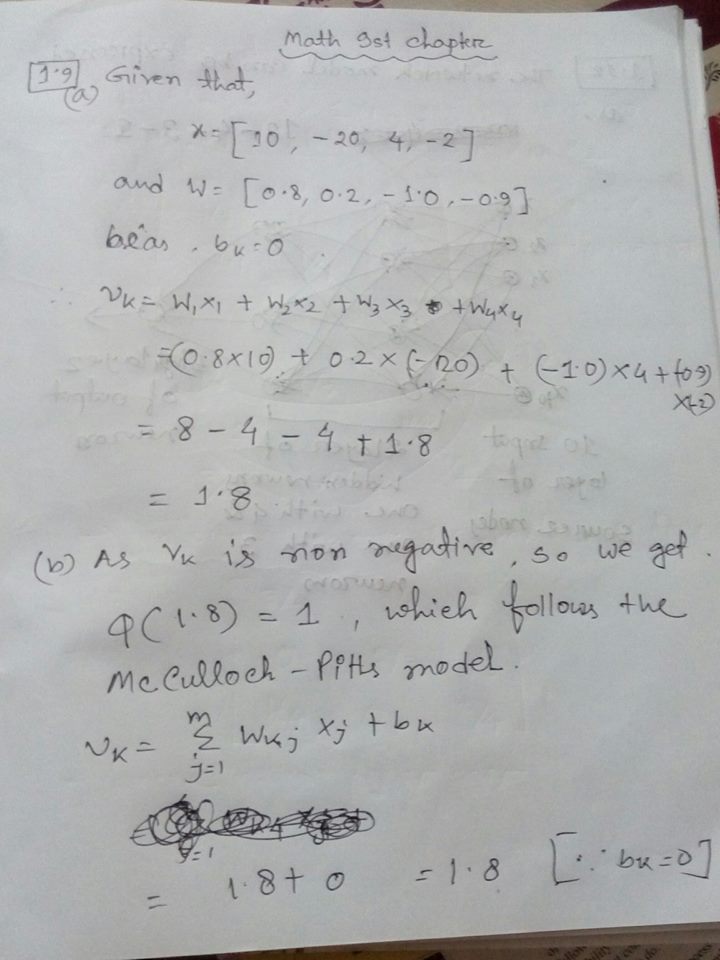 Math 1st chapter
1.9
(a) Given that,
x = [10, -20, 4, -2]
and W = [0.8, 0.2, -1.0, -0.9]
beas, bₖ = 0
∴ vₖ = W₁x₁ + W₂x₂ + W₃x₃ + W₄x₄
= (0.8×10) + 0.2×(-20) + (-1.0)×4 + (-0.9)
×(-2)
= 8 - 4 - 4 + 1.8
= 1.8
(b) As vₖ is non negative, so we get.
φ(1.8) = 1, which follows the
McCulloch-Pitts model.
vₖ = Σ Wₖⱼ xⱼ + bₖ
m
j=1
= 1.8 + 0 = 1.8 [∵ bₖ = 0]